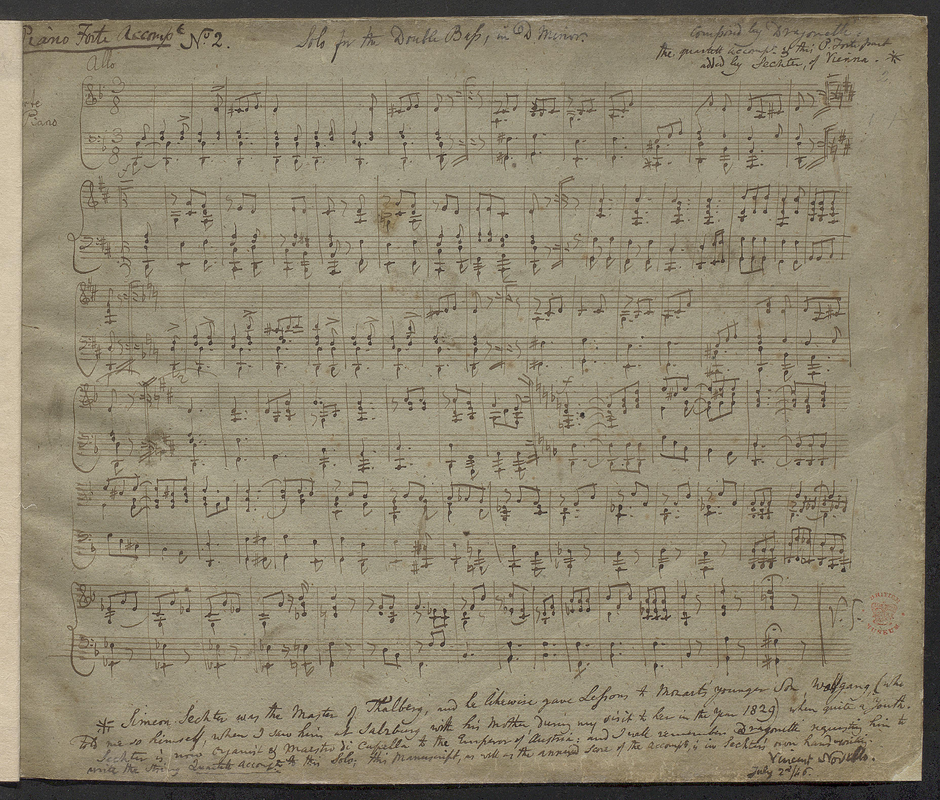 Piano Forte Accompt No 2. Solo for the Double Bass, in D Minor. Composed by Dragonetti,
the quartett accompt. & this P. Forte part
added by Sechter, of Vienna. *
Allo
Piano
BRITISH MUSEUM
* Simeon Sechter was the Master of Thalberg, and he likewise gave Lessons to Mozart's younger Son, Wolfgang, (who
told me so himself, when I saw him at Salzburg with his Mother during my visit to her in the Year 1829) when quite a Youth.
Sechter is now Organist & Maestro di Capella to the Emperor of Austria; and I well remember Dragonetti requesting him to
write the String Quartett accompt. to this Solo; this Manuscript, as well as the annexed Score of the accompt, is in Sechter's own hand-writing.
Vincent Novello.
July 2nd/46.